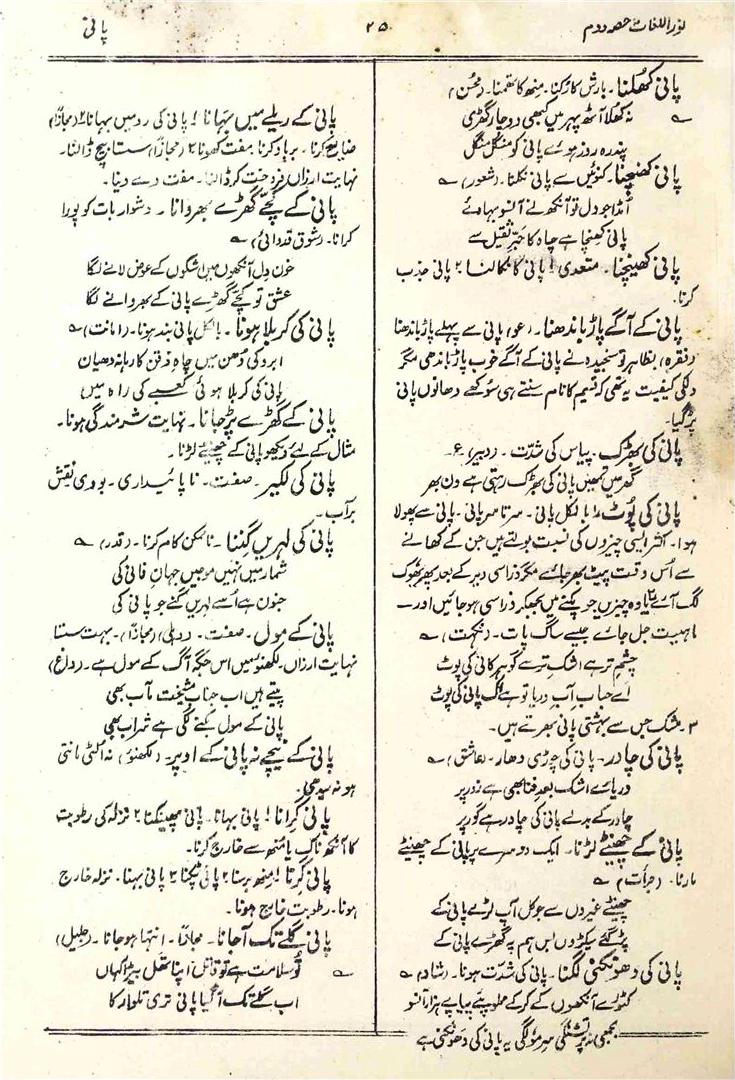 نور اللغات حصہ دوم
۲۵
پانی
پانی کھُلنا۔ بارش کا رُکنا۔ منھ کا تھمنا۔ (محسن)
نہ کھُلا آٹھ پہر میں کبھی دو چار گھڑی
پندرہ روز ہوئے پانی کو منگل منگل
پانی کھنچنا۔ کنوئیں سے پانی نکلنا۔ (شعور)
اُمڈا جو دل تو آنکھ نے آنسو بہا دئے
پانی کھنچا ہے چاہ کا جرِّ ثقیل سے
پانی کھینچنا۔ متعدی ۱ پانی کا نکالنا ۲ پانی جذب
کرنا۔
پانی کے آگے پاڑ باندھنا۔ (عو) پانی سے پہلے پاڑ باندھنا
(فقرہ) بظاہر تو سنجیدہ نے پانی کے آگے خوب پاڑ باندھی مگر
دل کی کیفیت یہ تھی کہ تسیم کا نام سنتے ہی سوکھے دھانوں پانی
پڑ گیا۔
پانی کی بھڑک۔ پیاس کی شدّت۔ (دبیر) ع۔
گھر میں تمھیں پانی کی بھڑک رہتی ہے دن بھر
پانی کی پُوٹ ۱ بالکل پانی۔ سرتاسر پانی۔ پانی سے پھولا
ہوا۔ اکثر ایسی چیزوں کی نسبت بولتے ہیں جن کے کھانے
سے اُس وقت پیٹ بھر جائے مگر ذرا سی دیر کے بعد پھر بھوک
لگ آئے ۲ وہ چیزیں جو پکنے میں بھبک کر ذرا سی ہو جائیں اور
ماہیت جل جائے جیسے ساگ پات۔ (نکہت)
چشمِ تر ہے اشک تر سے گوہر کانی کی پوٹ
اے حباب آب دریا تو ہے اک پانی کی پوٹ
۳۔ مشک جس سے بہشتی پانی بھرتے ہیں۔
پانی کی چادر۔ پانی کی چوڑی دھار۔ (عاشق)
دریائے اشک بعدِ فنا بھی ہے زور پر
چادر کے بدلے پانی کی چادر ہے گور پر
پانی کے چھینٹے لڑنا۔ ایک دوسرے پر پانی کے چھینٹے
مارنا۔ (جرأت)
چھینٹے غیروں سے جو کل آپ لڑے پانی کے
پڑ گئے سیکڑوں بس ہم پہ گھڑے پانی کے
پانی کی دھونکنی لگنا۔ پانی کی شدّت ہونا۔ (شاد)
کٹورے آنکھوں کے کر کے مملو پئے پیاپے ہزار آنسو
بجھی نہ پر تشنگی سر مو لگی یہ پانی کی دھونکنی ہے
پانی کے ریلے میں بہانا ۱ پانی کی رو میں بہانا ۲ (مجازاً)
ضایع کرنا۔ برباد کرنا۔ مفت کھونا ۲ (مجازاً) سستا بیچ ڈالنا۔
نہایت ارزاں فروخت کر ڈالنا۔ مفت دے دینا۔
پانی کے کچّے گھڑے بھروانا۔ دشوار بات کو پورا
کرانا۔ (شوق قدوائی)
خون دل آنکھوں میں اشکوں کے عوض لانے لگا
عشق تو کچے گھڑے پانی کے بھروانے لگا
پانی کی کربلا ہونا۔ بالکل پانی بند ہونا۔ (امانت)
ابرو کی دُھن میں چاہِ ذقن کا رہا نہ دھیان
پانی کی کربلا ہوئی کعبے کی راہ میں
پانی کے گھڑے پڑ جانا۔ نہایت شرمندگی ہونا۔
مثال کے لئے دیکھو پانی کے چھینٹے لڑنا۔
پانی کی لکیر۔ صفت۔ ناپائیداری۔ بودی نقش
بر آب۔
پانی کی لہریں گننا۔ ناممکن کام کرنا۔ (قدر)
شمار میں نہیں موجیں جہانِ فانی کی
جنون ہے اُسے لہریں گنے جو پانی کی
پانی کے مول۔ صفت۔ (دہلی) (مجازاً)۔ بہت سستا
نہایت ارزاں۔ لکھنؤ میں اس جگہ آگ کے مول ہے۔ (داغ)
پیتے ہیں اب جناب مشیخت مآب بھی
پانی کے مول بکنے لگی ہے شراب بھی
پانی کے نیچے نہ پانی کے اوپر۔ (لکھنؤ) نہ الٹی مانتی
ہو نہ سیدھی۔
پانی گرانا ۱ پانی بہانا۔ پانی پھینکنا ۲ نزلہ کی رطوبت
کا آنکھ ناک یا منھ سے خارج کرنا۔
پانی گرنا ۱ منھ برسنا ۲ پانی ٹپکنا ۳ پانی بہنا۔ نزلہ خارج
ہونا۔ رطوبت خارج ہونا۔
پانی گلے تک آ جانا۔ مجازاً۔ انتہا ہو جانا۔ (جلیل)
تو سلامت ہے تو قاتل اپنا تھل بیڑا کہاں
اب گلے تک آ گیا پانی تری تلوار کا